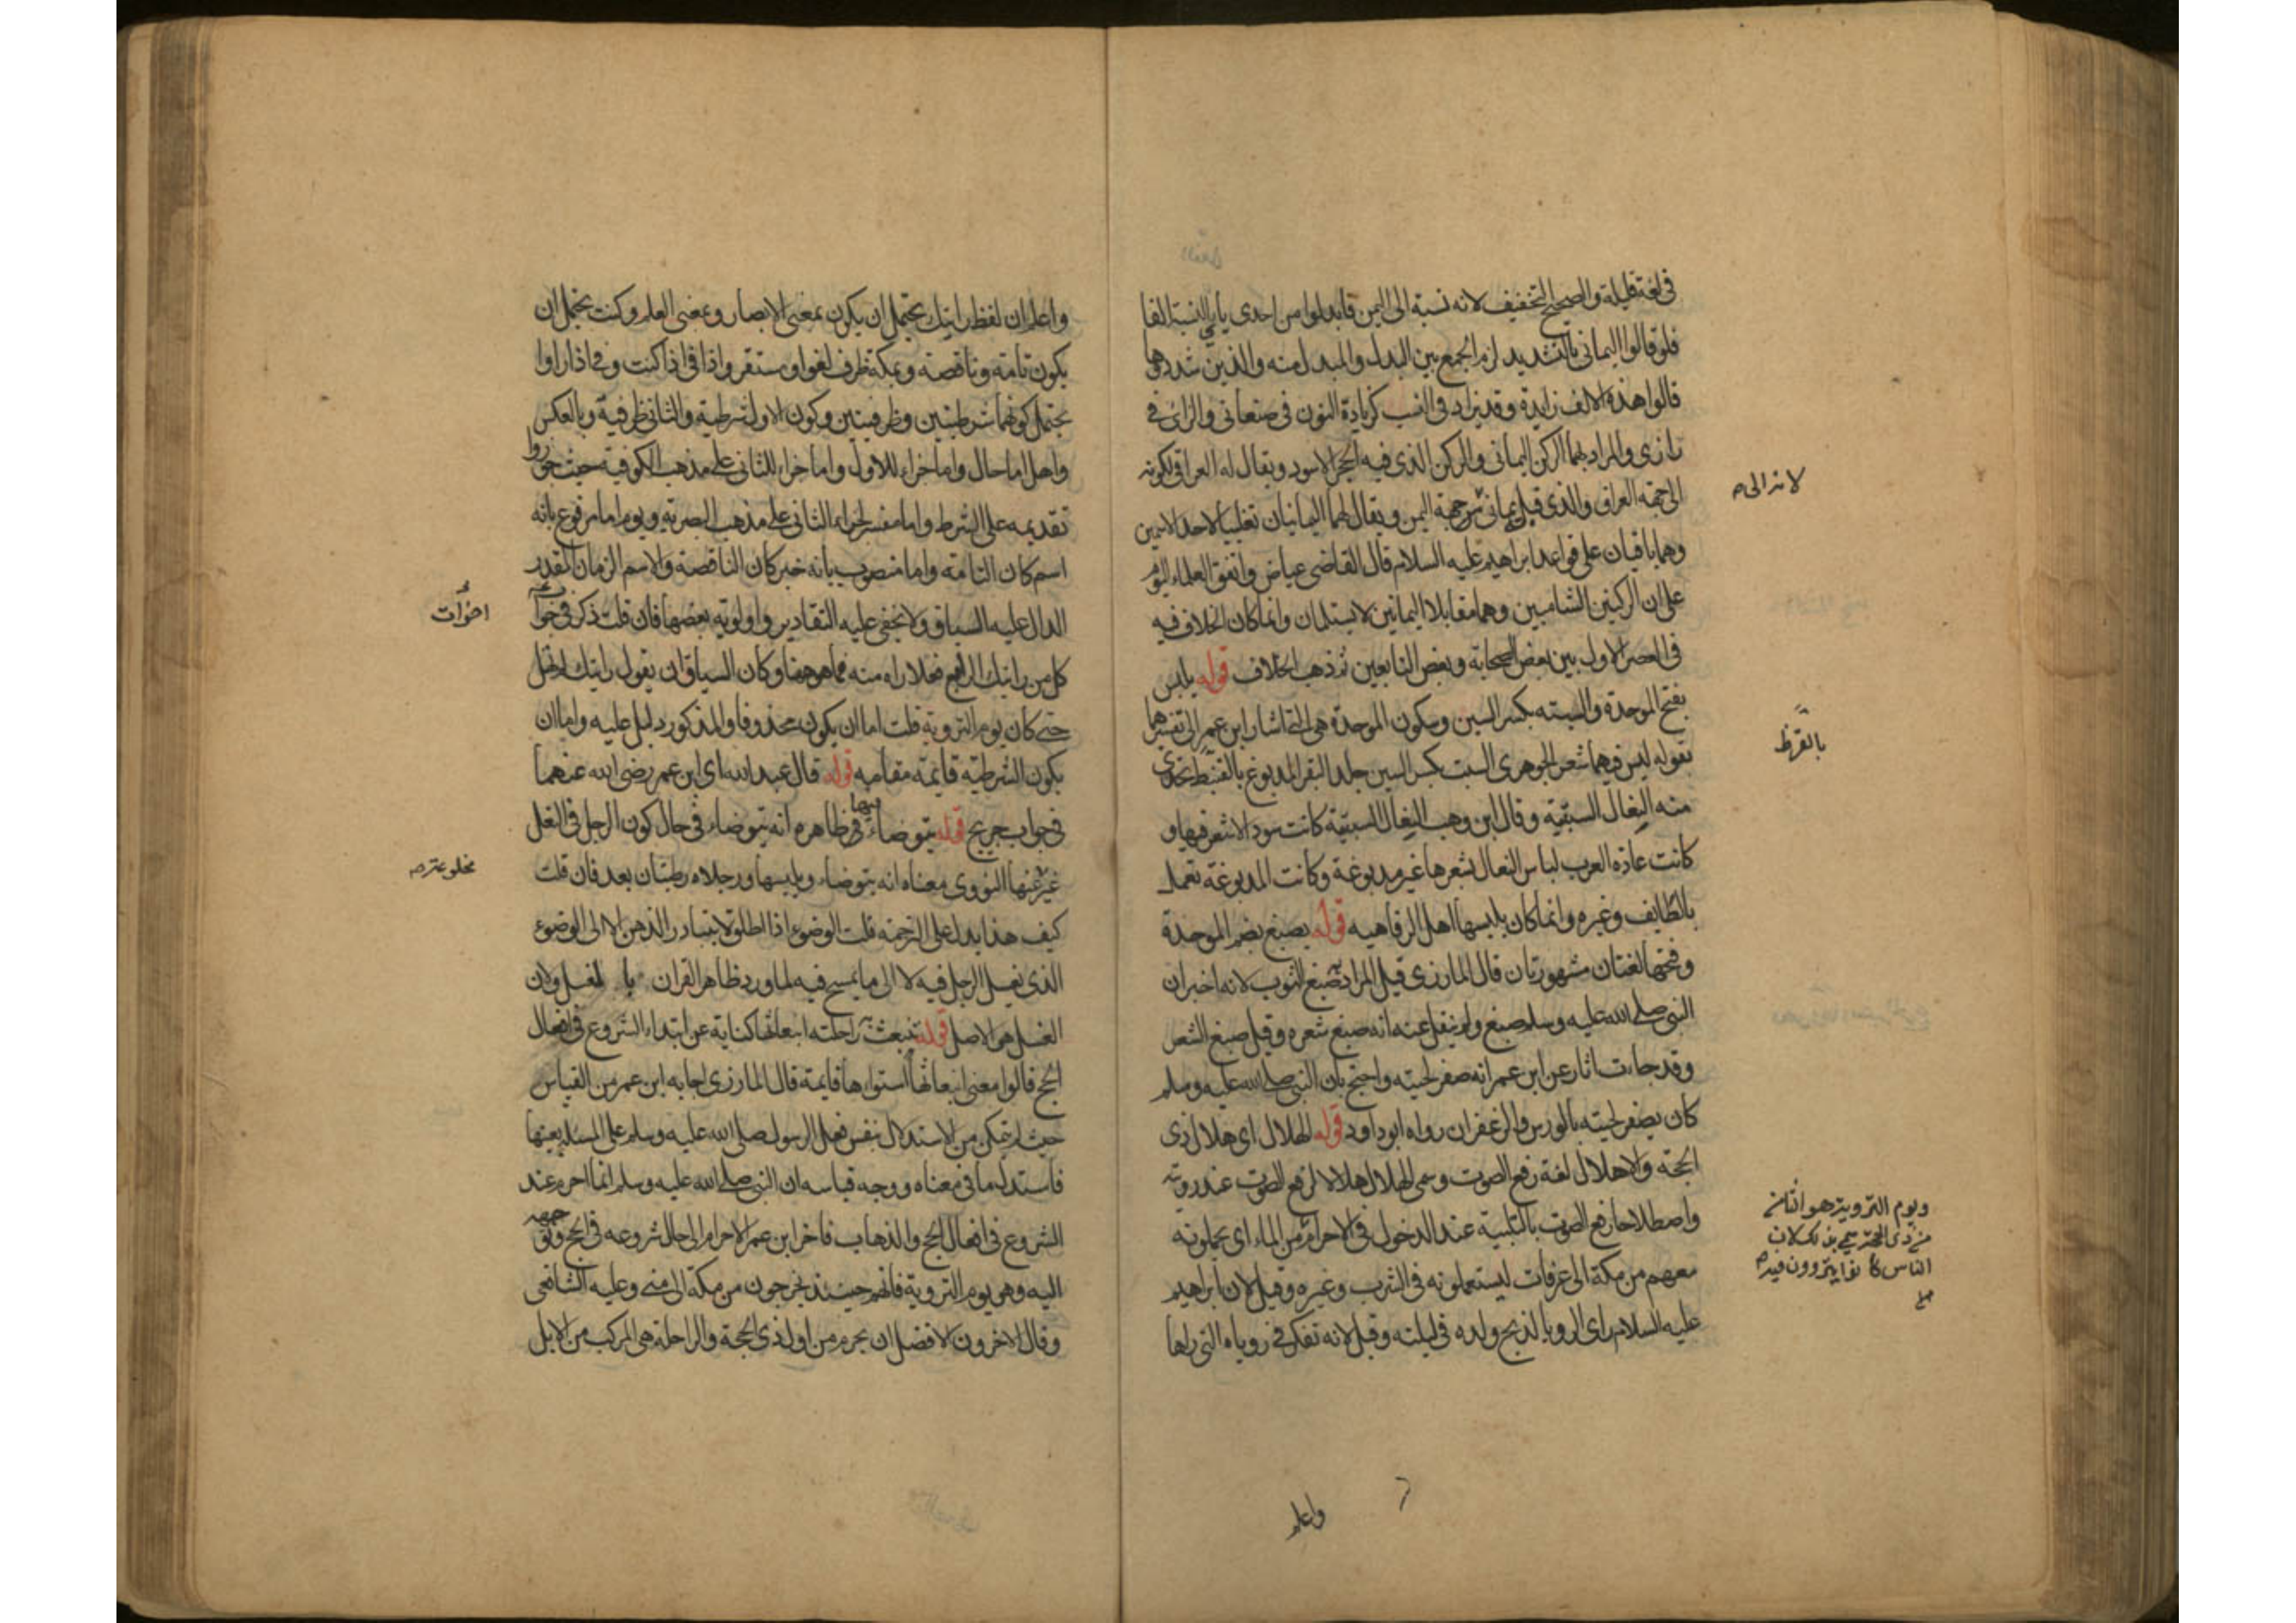 في لغة قليلة والصحيح التخفيف لانه نسبة الى اليمن فابدلوا من احدى يأي النسبة الفا
فلو قالوا اليماني بالتشديد لزم الجمع بين البدل والمبدل منه والذين شددوها
قالوا هذه الالف زايدة وقد يزاد في النسب كزيادة النون في صنعاني والزاى في
رازى والمراد بهما الركن اليماني والركن الذى فيه الحجر الاسود ويقال له العراقي لكونه
الى جهة العراق والذى قبله يماني من جهة اليمن ويقال لهما اليمانيان تغليبا لاحد الاسمين
وهما باقيان على قواعد ابراهيم عليه السلام قال القاضى عياض واتفق العلماء اليوم
على ان الركنين الشاميين وهما مقابلا اليمانيين لا يستلمان وانما كان الخلاف فيه
في العصر الاول بين بعض الصحابة وبعض التابعين ثم ذهب الخلاف قوله يلبس
بفتح الموحدة والسبته بكسر السين وسكون الموحدة هي التي اشار ابن عمر الى تفسيرها
بقوله ليس فيهما شعر الجوهرى السبت بكسر السين جلد البقر المدبوغ بالقرظ تحذى
منه النعال السبتية وقال ابن وهب النعال السبتية كانت سودا لا شعر فيها و
كانت عادة العرب لباس النعال بشعرها غير مدبوغة وكانت المدبوغة تعمل
بالطايف وغيره وانما كان يلبسها اهل الرفاهيه قوله يصبغ بضم الموحدة
وفتحها لغتان مشهورتان قال المازرى قيل المراد صبغ الثوب لانه اخبر ان
النبى صلى الله عليه وسلم صبغ ولم ينقل عنه انه صبغ شعره وقيل صبغ الشعر
وقد جاءت اثار عن ابن عمر انه صفر لحيته واحتج بان النبى صلى الله عليه وسلم
كان يصفر لحيته بالورس والزعفران رواه ابو داود قوله الهلال اى هلال ذى
الحجة والاهلال لغة رفع الصوت وسمى الهلال هلالا لرفع الصوت عند رويته
واصطلاحا رفع الصوت بالتلبية عند الدخول في الاحرام من الماء اى يحملونه
معهم من مكة الى عرفات ليستعملونه في الشرب وغيره وقيل لان ابراهيم
عليه السلام راى الرويا لذبح ولده في ليلته وقيل لانه تفكر في روياه التى راها
لانه الى
بالقرظ
ويوم التروية هو الثامن
من ذى الحجة سمي بذلك لان
الناس كانوا يتروون فيه
واعلم
واعلم ان لفظ رايتك يحتمل ان يكون بمعنى الابصار وبمعنى العلم وكنت يحتمل ان
يكون تامة وناقصة وبمكة ظرف لغو او مستقر واذا في اذا كنت وفي اذا راوا
يحتمل كونهما شرطيتين وظرفيتين وكون الاول شرطية والثاني ظرفية وبالعكس
واهل اما حال واما جزاء للاول واما جزاء للثاني على مذهب الكوفية حيث جوزوا
تقديمه على الشرط واما مفسر لجزاء الثاني على مذهب البصرية ويوم اما مرفوع بانه
اسم كان التامة واما منصوب بانه خبر كان الناقصة والاسم الزمان المقدر
الدال عليه السياق ولا يخفى عليه التقادير واولوية بعضها فان قلت ذكر في جواب
كل من رايتك الاربع فعلا راه منه فما هو ههنا وكان السياق ان يقول رايتك لم تهل
حتى كان يوم التروية قلت اما ان يكون محذوفا والمذكور دليل عليه واما ان
يكون الشرطية قايمة مقامه قوله قال عبد الله اى ابن عمر رضى الله عنهما
في جواب جريج قوله يتوضاء فيها ظاهره انه يتوضاء في حال كون الرجل في النعل
غير عنها النووى معناه انه يتوضاء ويلبسها ورجلاه رطبتان بعد فان قلت
كيف هذا يدل على الترجمة قلت الوضوء اذا اطلق لا يتبادر الذهن الا الى الوضوء
الذى يغسل الرجل فيه لا الى ما يمسح فيه لما ورد ظاهر القران بالغسل ولان
الغسل هو الاصل قوله تنبعث به راحلته انبعاثها كناية عن ابتداء الشروع في افعال
الحج قالوا معنى انبعاثها استواءها قايمة قال المازرى اجابه ابن عمر من القياس
حيث لم يتمكن من الاستدلال بنفس فعل الرسول صلى الله عليه وسلم على المسئلة بعينها
فاستدل بما في معناه ووجه قياسه ان النبى صلى الله عليه وسلم انما احرم عند
الشروع في افعال الحج والذهاب فاخر ابن عمر الاحرام الى حال شروعه في الحج وتوجهه
اليه وهو يوم التروية فانهم حينئذ يخرجون من مكة الى منى وعليه الشافعى
وقال الاخرون الافضل ان يحرم من اول ذى الحجة والراحلة هي المركب من الابل
اخوات